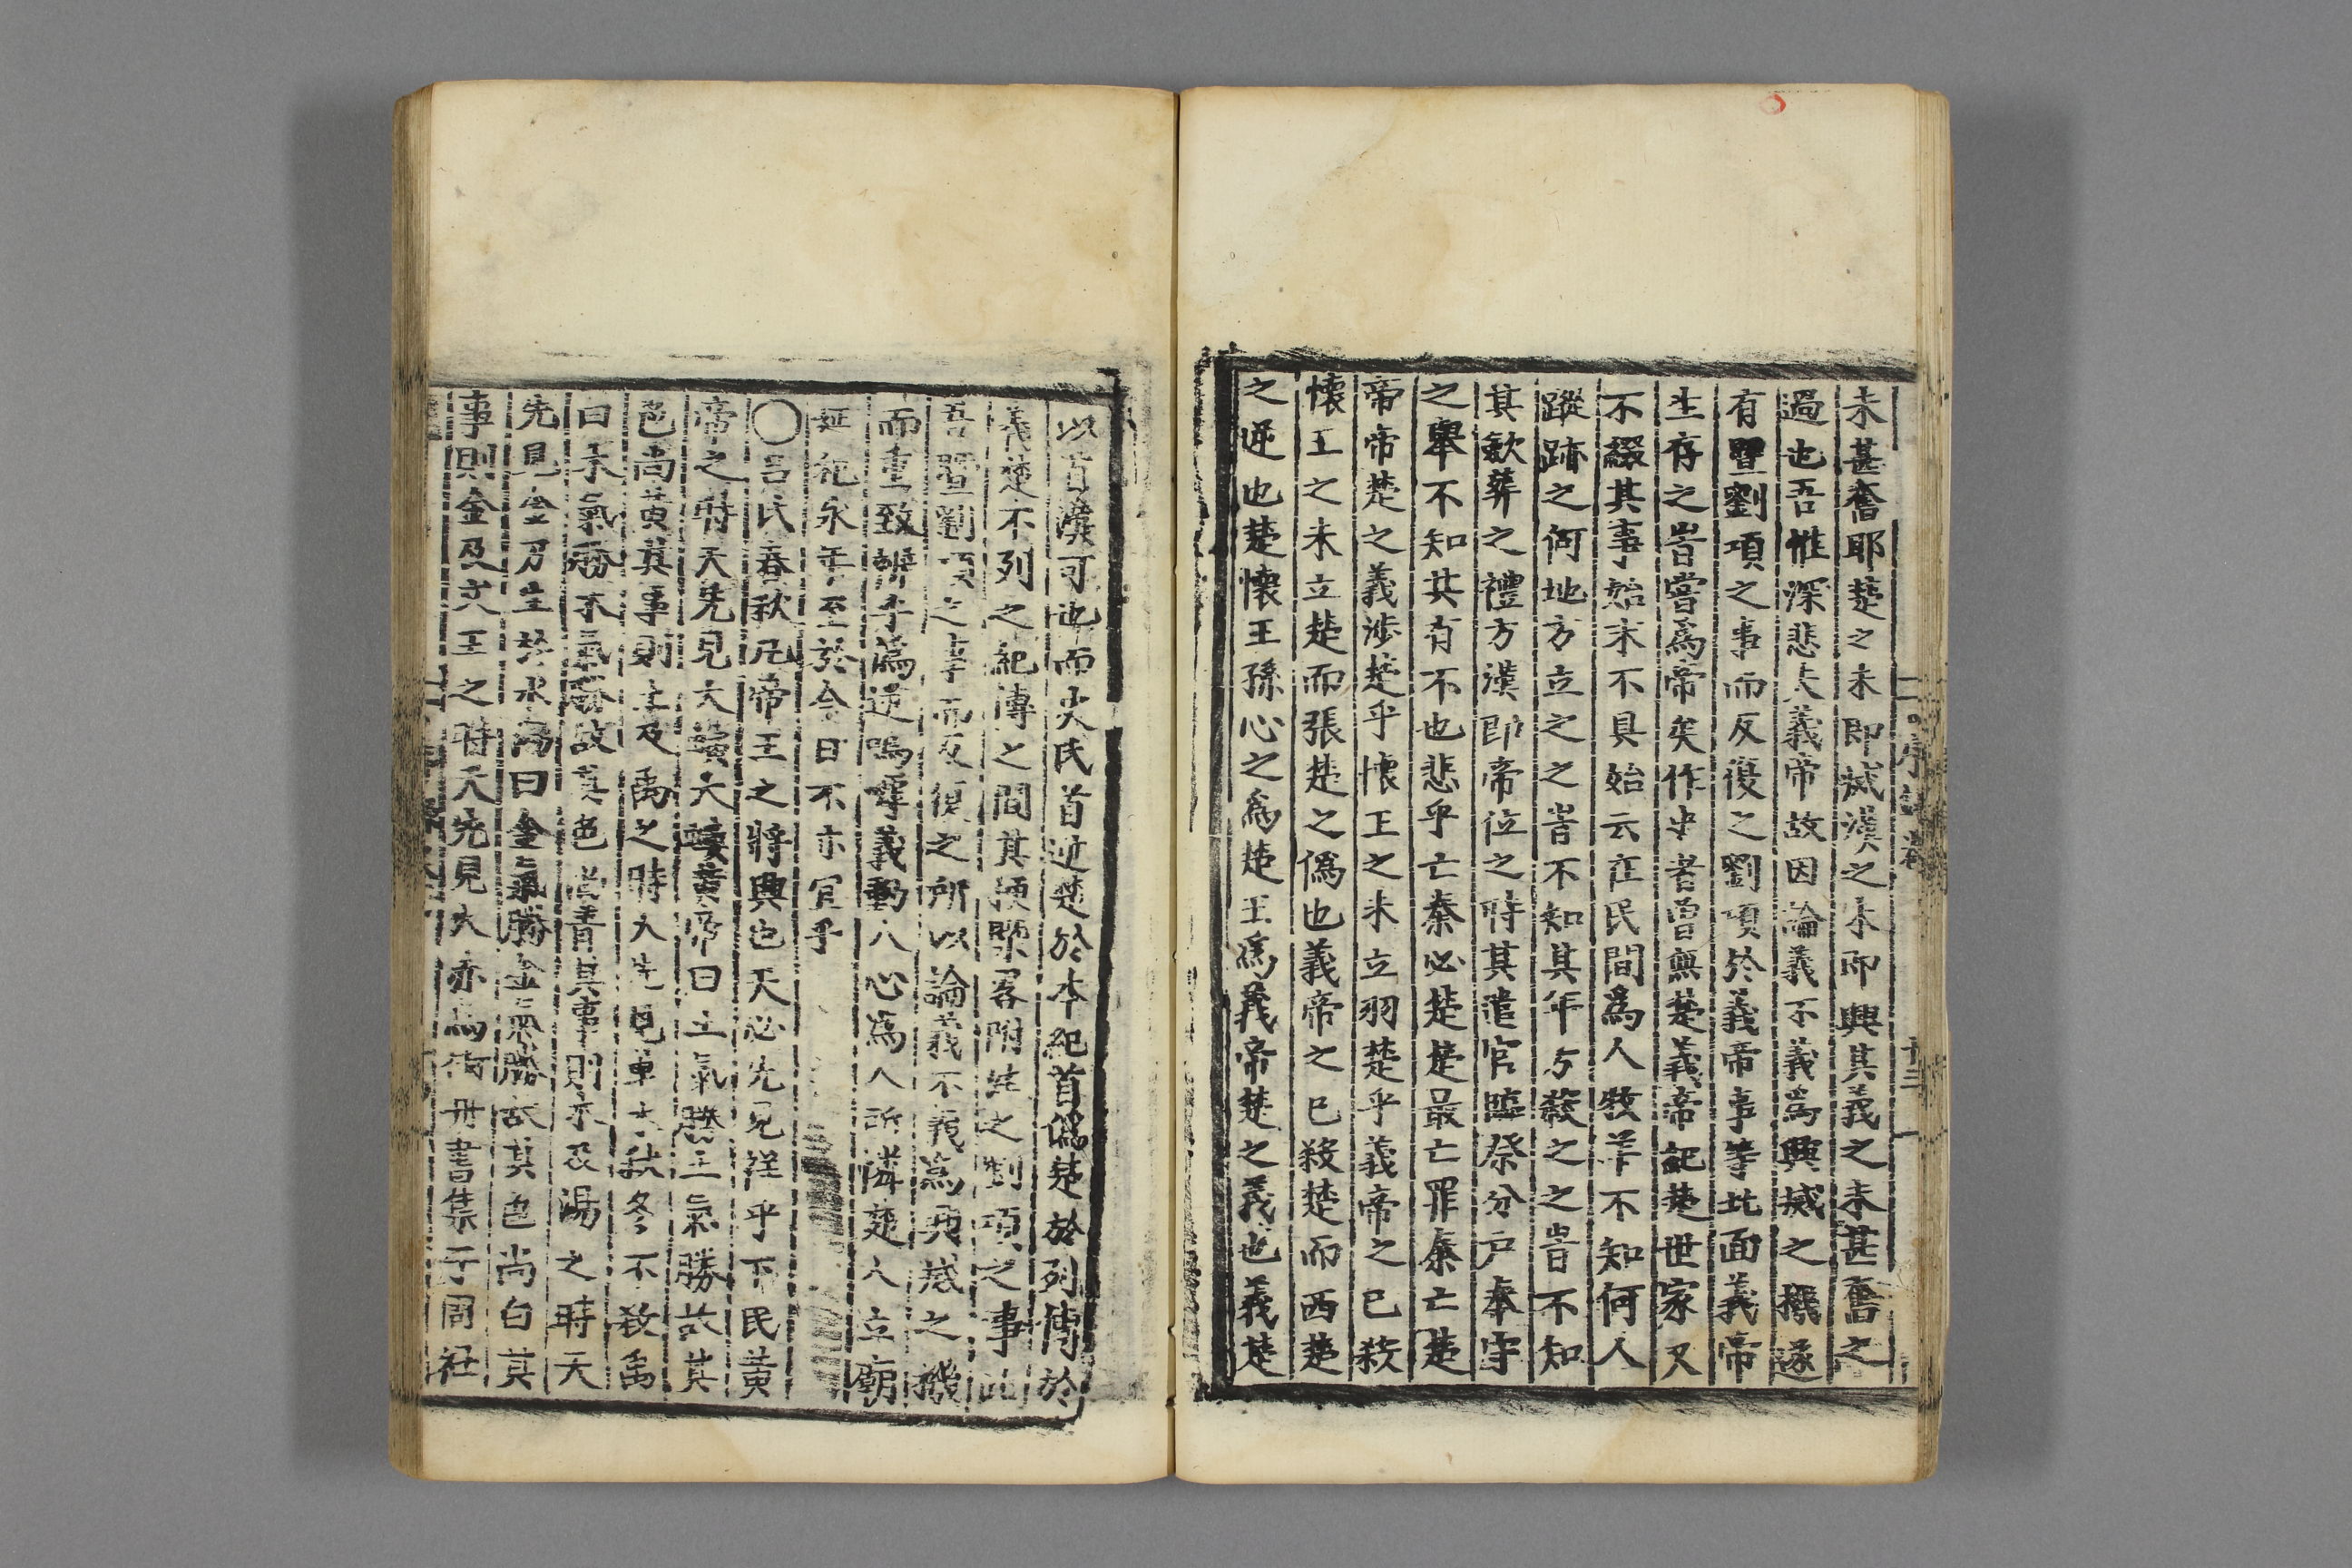 未甚奮耶楚之未即滅漢之未即興其義之未甚奮之
過也吾惟深悲夫義帝故因論義不義爲興滅之撥遂
有曁劉項之事而反復之劉項於義帝事等北面義帝
生存之旹嘗爲帝矣作史者曾無楚義帝記楚世家又
不綴其事始末不具始云在民間爲人牧羊不知何人
蹤跡之何地方立之之旹不知其年方殺之之旹不知
其歛葬之禮方漢即帝位之時其遣官臨祭分户奉守
之舉不知其有不也悲乎亡秦必楚楚最亡罪秦亡楚
帝帝楚之義涉楚乎懷王之未立羽楚乎義帝之已殺
懷王之未立楚而張楚之僞也義帝之已殺楚而西楚
之逆也楚懷王孫心之爲楚王爲義帝楚之義也義楚
以首漢可也而史氏首逆楚於本紀首僞楚於列傳於
義楚不列之紀傳之間其湏槩畧附姓之劉項之事此
吾曁劉項之事而反復之所以論義不義爲興滅之撥
而重致辨乎僞逆嗚嘑義動人心爲人所憐楚人立廟
延祀永年至於今日不亦宜乎
〇吕氏春秋凡帝王之將興也天必先見祥乎下民黄
帝之時天先見大螾大螻黄帝曰土氣勝土氣勝故其
色尚黄其事則土及禹之時天先見草木秋冬不殺禹
曰木氣勝木氣勝故其色尚青其事則木及湯之時天
先見金刃生於水湯曰金氣勝金氣勝故其色尚白其
事則金及文王之時天先見大赤烏銜丹書集于周社